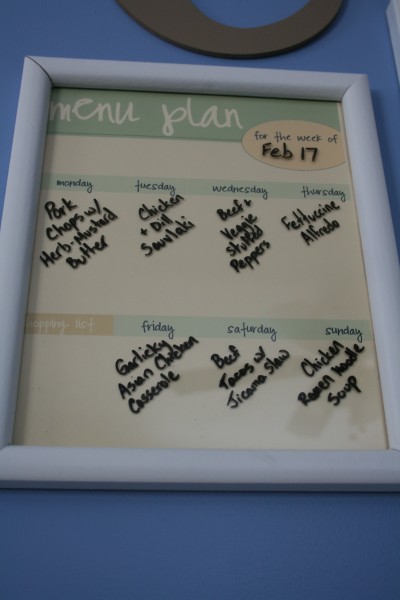 menu plan
for the week of
Feb 17
monday
Pork
Chops w/
Herb-Mustard
Butter
tuesday
Chicken
+ Dill
Souvlaki
wednesday
Beef +
Veggie
Stuffed
Peppers
thursday
Fettuccine
Alfredo
hopping list
friday
Garlicky
Asian Chicken
Casserole
saturday
Beef
Tacos w/
Jicama Slaw
sunday
Chicken
Ramen Noodle
Soup